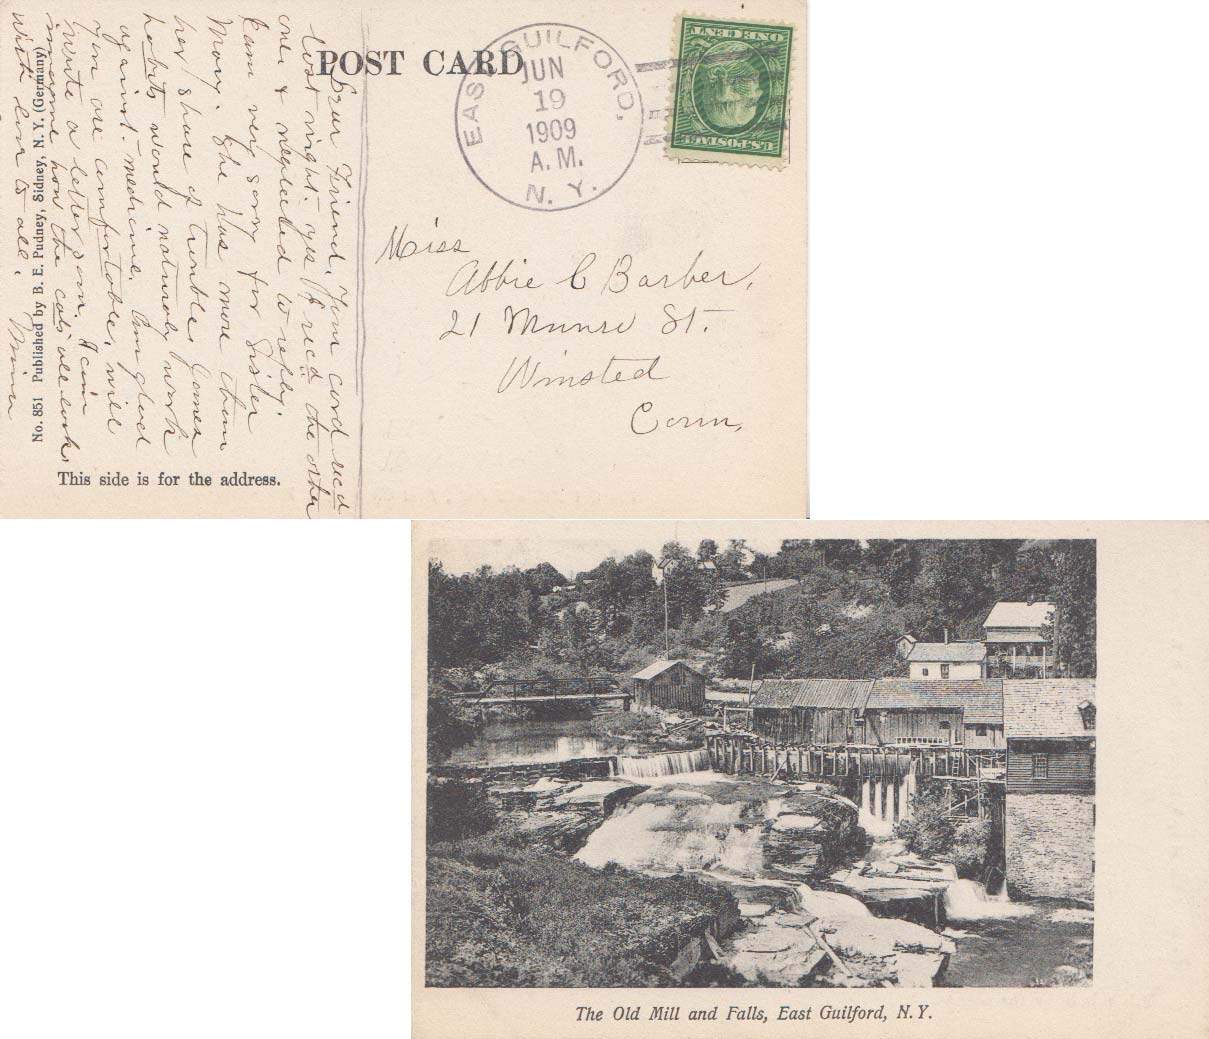 POST CARD
EAST GUILFORD,
JUN
19
1909
A.M.
N. Y.
U.S. POSTAGE
ONE CENT
Dear Friend, Your card rec'd
last night. yes I rec'd the other
one & neglected to reply.
I am very sorry for Sister
Mary. She has more than
her share of trouble. Jones
habits would naturaly work
against medicine. Am glad
you are comfortable, will
write a letter soon. I can
imagine how the cats all look.
With love to all. Minnie
Miss
Abbie C Barber,
21 Munro St.
Winsted
Conn.
No. 851 Published by B. E. Pudney, Sidney, N. Y. (Germany)
This side is for the address.
The Old Mill and Falls, East Guilford, N. Y.